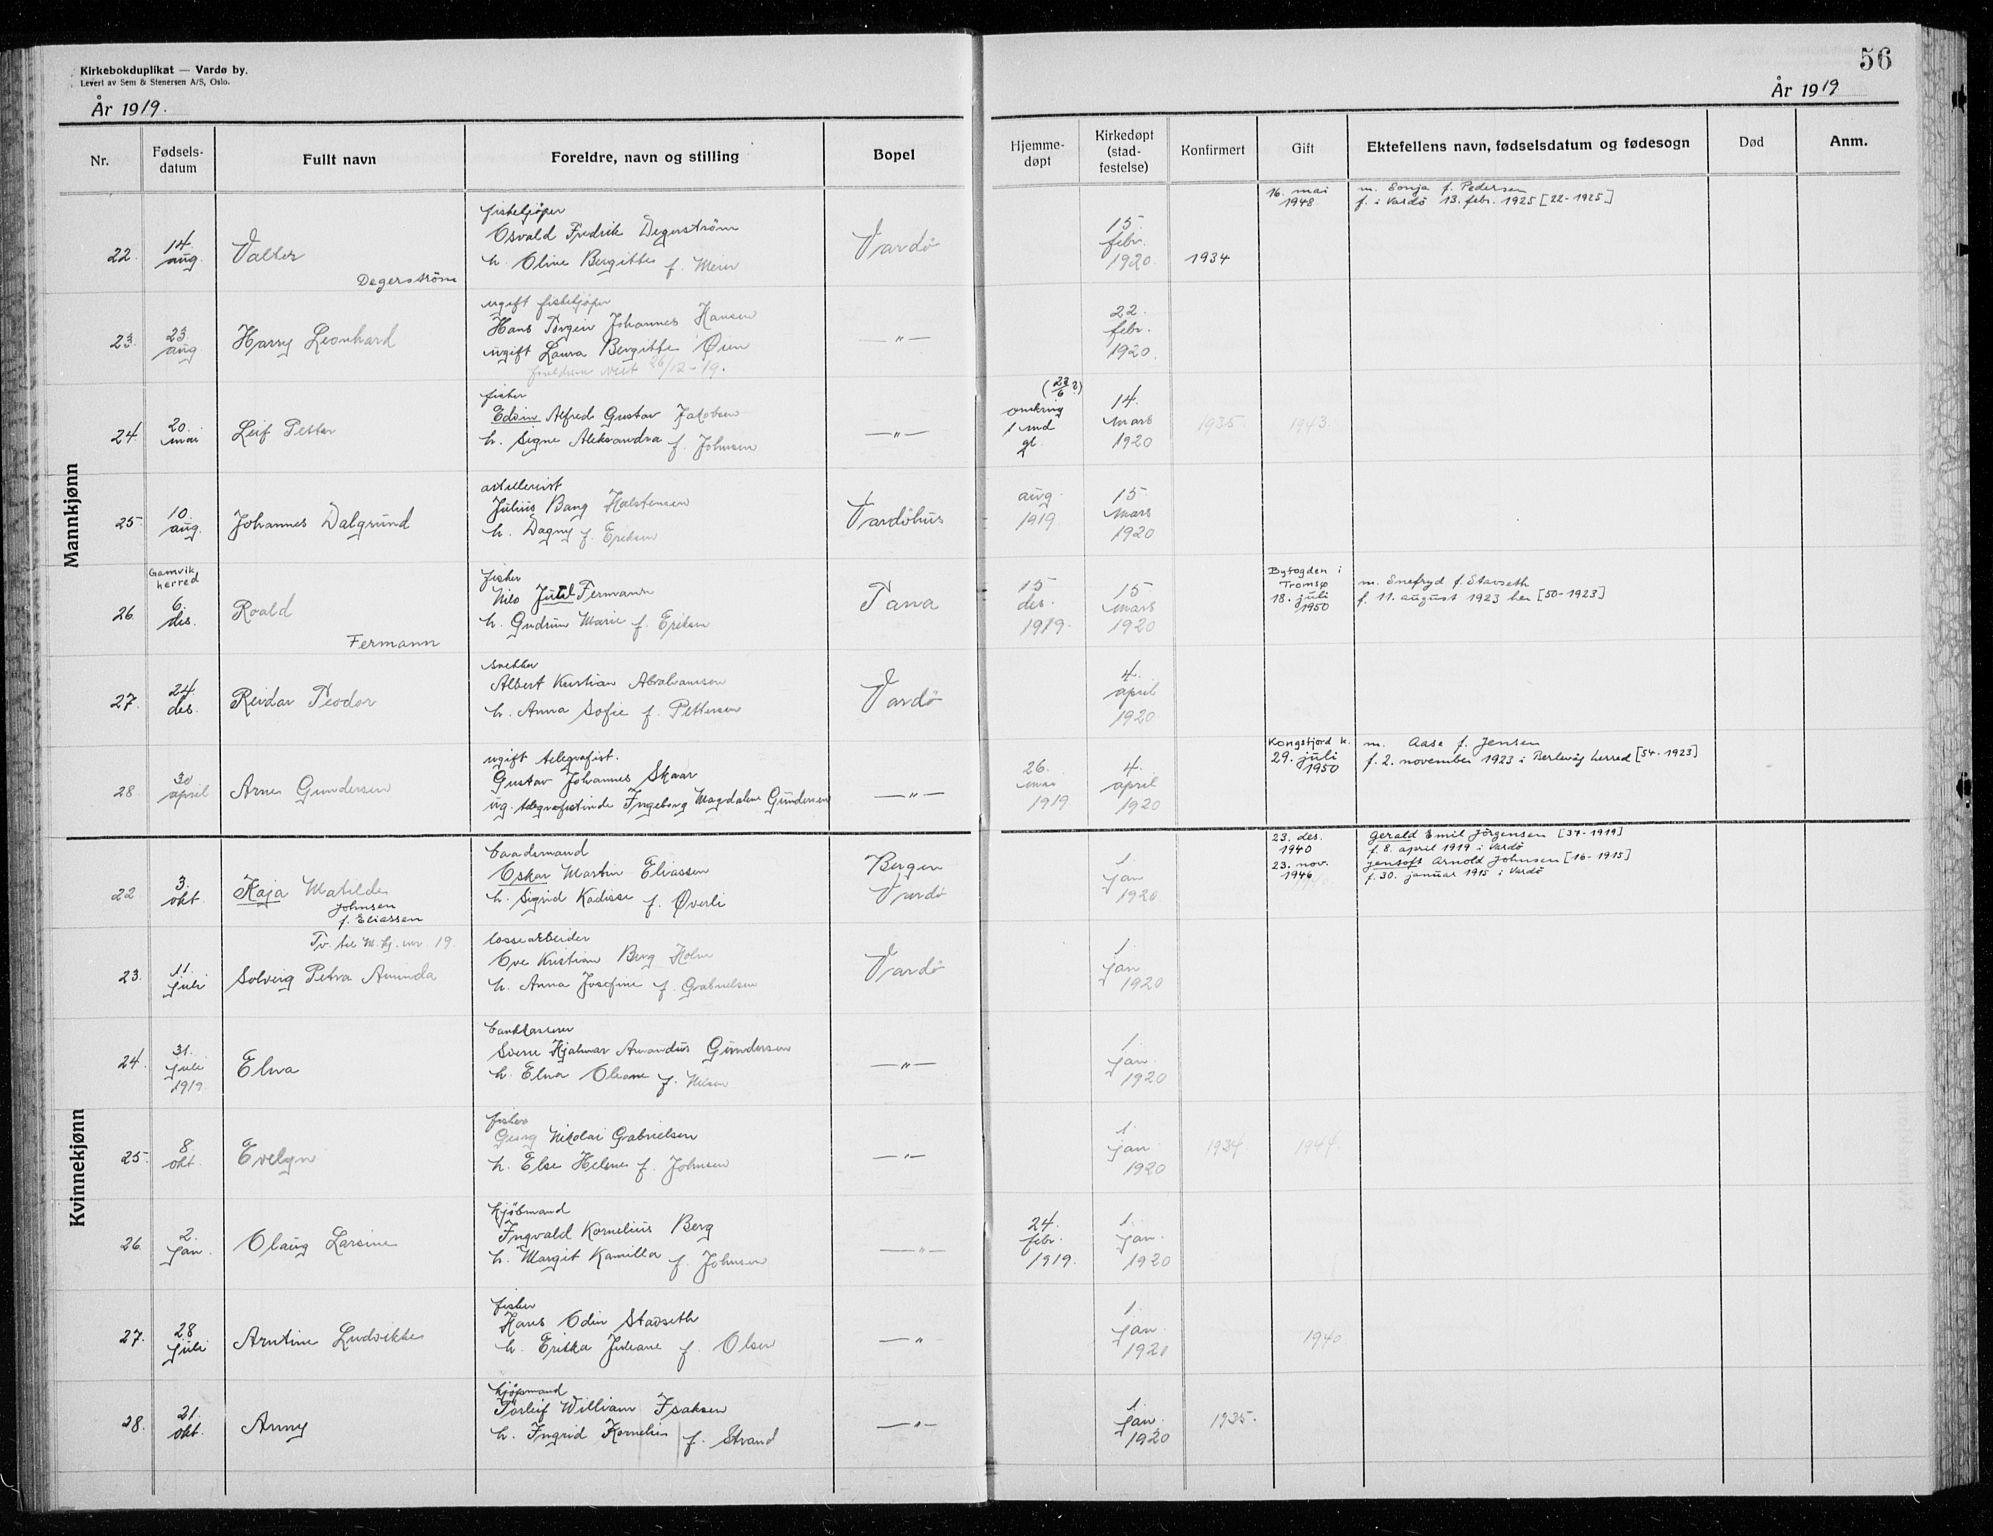 Kirkebokduplikat — Vardø by.
Levert av Sem & Stenersen A/S, Oslo.
År 1919.
56
År 1919
Nr.
Fødsels-
datum
Fullt navn
Foreldre, navn og stilling
Bopel
Hjemme-
døpt
Kirkedøpt
(stad-
festelse)
Konfirmert
Gift
Ektefellens navn, fødselsdatum og fødesogn
Død
Anm.
Mannkjønn
22.
14.
aug.
Valter
Degerstrøm
fiskekjøper
Osvald Fredrik Degerstrøm
h. Oline Bergitte f. Meier
Vardø
15.
febr.
1920.
1934
16. mai
1948
m. Sonja f. Pedersen
f. i Vardö 13. febr. 1925 [22-1925]
23.
23.
aug
Harry Leonhard
ugift fiskekjøper
Hans Jørgen Johannes Hansen
ugift Laura Bergitte Øien
foreldrene viet 26/12-19.
—"—
22.
febr.
1920.
24.
20.
mai
Leif Petter
fisker
Edvin Alfred Gustav Jakobsen
h. Signe Aleksandra f. Johnsen
—"—
(23/6?)
omkring
1 md
gl.
14.
mars
1920
1935
1943.
25.
10.
aug.
Johannes Dalgrund
artillerist
Julius Bang Halstensen
h. Dagny f. Eriksen
Vardøhus
aug.
1919.
15.
mars
1920
26.
Gamvik
herred
6.
des.
Roald
Fermann
fisker
Nils Jutul Fermann
h. Gudrun Marie f. Eriksen
Tana
15
des.
1919.
15.
mars
1920
Byfogden i
Tromsø
18. juli
1950
m. Snefryd f. Stavseth
f. 11. august 1923 her [50-1923]
27.
24.
des.
Reidar Teodor
snekker
Albert Kristian Abrahamsen
h. Anna Sofie f. Pettersen
Vardø
4.
april
1920
28.
30
april
Arne Gundersen
ugift telegrafist.
Gustav Johannes Skaar
ug. telegrafistinde Ingeborg Magdalene Gundersen
—"—
26.
mai
1919
4.
april
1920
Kongsfjord k.
29. juli
1950
m. Aase f. Jensen
f. 2. november 1923 i Berlevåg herred [54-1923]
Kvinnekjønn
22
3.
okt.
Kaja Matilde
Johnsen
f. Eliassen
baadsmand
Oskar Martin Eliassen
h. Sigrid Kadisse f. Øverli
Bergen
Vardø
1
jan
1920
23. des.
1940
23. nov.
1946
Gerald Emil Jörgensen [37-1919]
f. 8. april 1919 i Vardö
Jentoft Arnold Johnsen [16-1915]
f. 30. januar 1915 i Vardö
23.
11.
juli
Tv. til M.kj. nr. 19.
Solveig Petra Aminda
lossearbeider
Ove Kristian Berg Holm
h. Anna Josefine f. Gabrielsen
Vardø
1.
jan
1920
24.
31.
juli
1919.
Elna
bankkasserer
Sverre Hjalmar Amandus Gundersen
h. Elna Oleane f. Nilsen
—"—
1.
jan.
1920
25.
8
okt.
Evelyn
fisker
Georg Nikolai Gabrielsen
h. Else Helene f. Johnsen
—"—
1.
jan
1920
1934
1944.
26.
2.
jan.
Olaug Larsine
kjøbmand
Ingvald Kornelius Berg
h. Margit Kamilla f. Johnsen
—"—
24.
febr.
1919.
1.
jan.
1920
27.
28
juli
Arntine Ludvikke
fisker
Hans Odin Stavseth
h. Erika Juliane f. Olsen
—"
1.
jan.
1920
1940
28.
21.
okt.
Anny
kjøpmand
Torleif William Isaksen
h. Ingrid Kornelie f. Strand
—"—
1.
jan.
1920
1935.